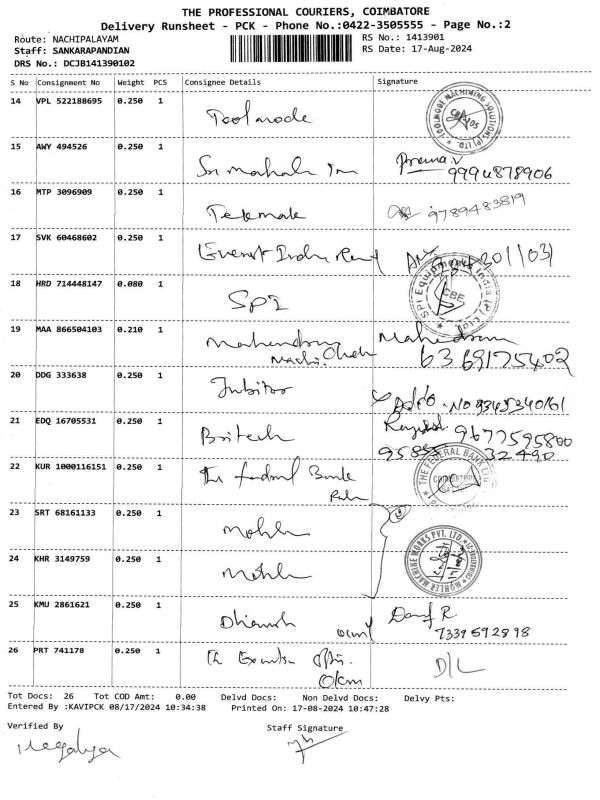 THE PROFESSIONAL COURIERS, COIMBATORE
Delivery Runsheet - PCK - Phone No.:0422-3505555 - Page No.:2
Route: NACHIPALAYAM RS No.: 1413901
Staff: SANKARAPANDIAN RS Date: 17-Aug-2024
DRS No.: DCJB141390102
S No Consignment No Weight PCS Consignee Details Signature
14 VPL 522188695 0.250 1 Toolmode
TOOLMODE MACHINING SOLUTIONS (P) LTD.
15 AWY 494526 0.250 1 Sri Mahal
Prema.V
9994878906
16 MTP 3096909 0.250 1 Tekmate 9789483819
17 SVK 60468602 0.250 1 Everest
18 HRD 714448147 0.080 1 SPI
SPI Equipments India (P) Ltd.
CBE
19 MAA 866504103 0.210 1
6369175402
20 DDG 333638 0.250 1 No 9345340161
21 EDQ 16705531 0.250 1 Britech
9677595800
22 KUR 1000116151 0.250 1 The Federal Bank
THE FEDERAL BANK LTD
COIMBATORE
23 SRT 68161133 0.250 1 Mohler
24 KHR 3149759 0.250 1 Mohler
MOHLER MACHINE WORKS PVT. LTD.
25 KMU 2861621 0.250 1
7339592898
26 PRT 741178 0.250 1 The D/L
Tot Docs: 26 Tot COD Amt: 0.00 Delvd Docs: Non Delvd Docs: Delvy Pts:
Entered By :KAVIPCK 08/17/2024 10:34:38 Printed On: 17-08-2024 10:47:28
Verified By Staff Signature